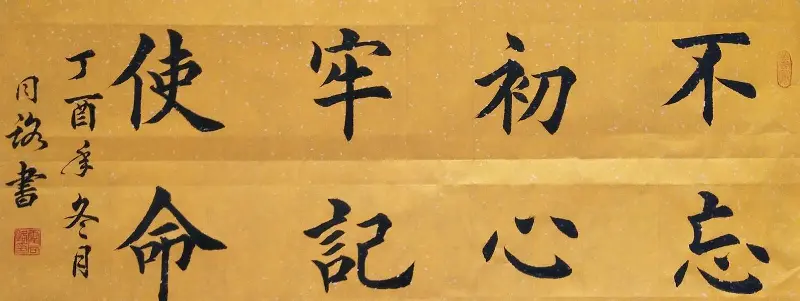 不忘
初心
牢記
使命
丁酉年冬月
同璐書